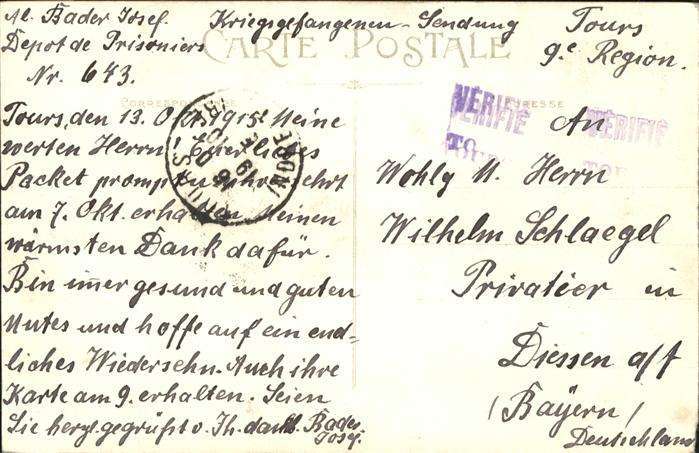 Al. Bader Josef. Kriegsgefangenen-Sendung Tours
Depot de Prisoniers 9.e Region.
Nr. 643.
CARTE POSTALE
CORRESPONDANCE ADRESSE
Tours, den 13. Okt. 1915. Meine
werten Herrn
Packet prompt
am 7. Okt. erhalten, meinen
wärmsten Dank dafür.
Bin imer gesund und guten
Mutes und hoffe auf ein end-
liches Wiedersehn. Auch ihre
Karte am 9. erhalten. Seien
Sie herzl. gegrüßt v. Ih. dankb. Bader
Josef.
VÉRIFIÉ
VÉRIFIÉ
VÉRIFIÉ
An
Wohlg. Herrn
Wilhelm Schlaegel
Privatier in
Diessen a/f
(Bayern)
Deutschland